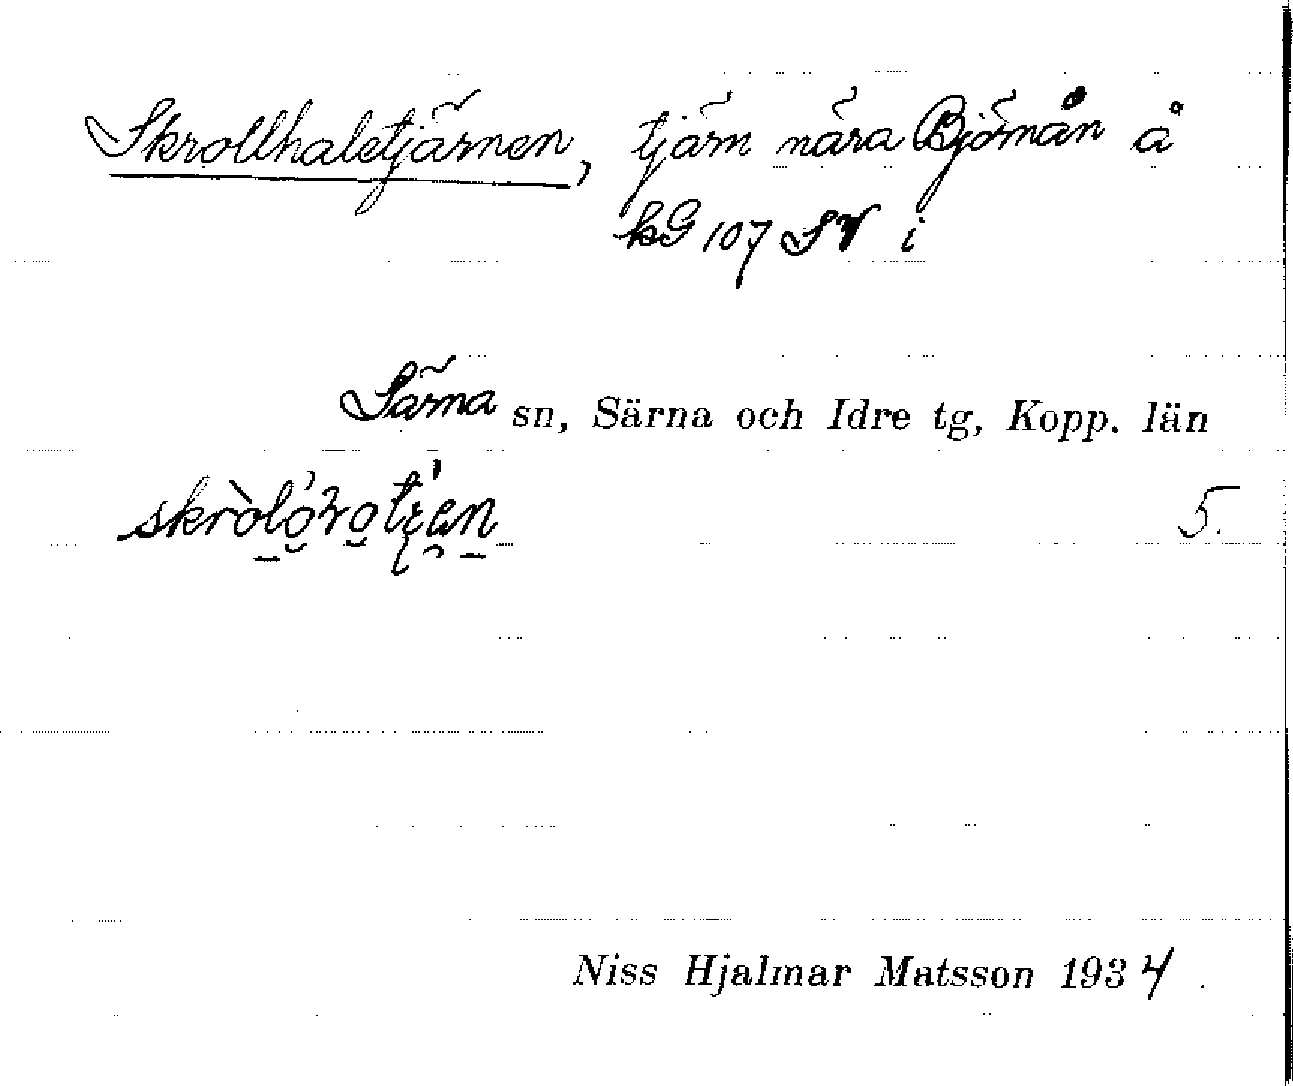 Skrollhaletjärnen, tjärn nära Björnån å
kG 107 SV i
Särna sn, Särna och Idre tg, Kopp. län
5.
Niss Hjalmar Matsson 1934.